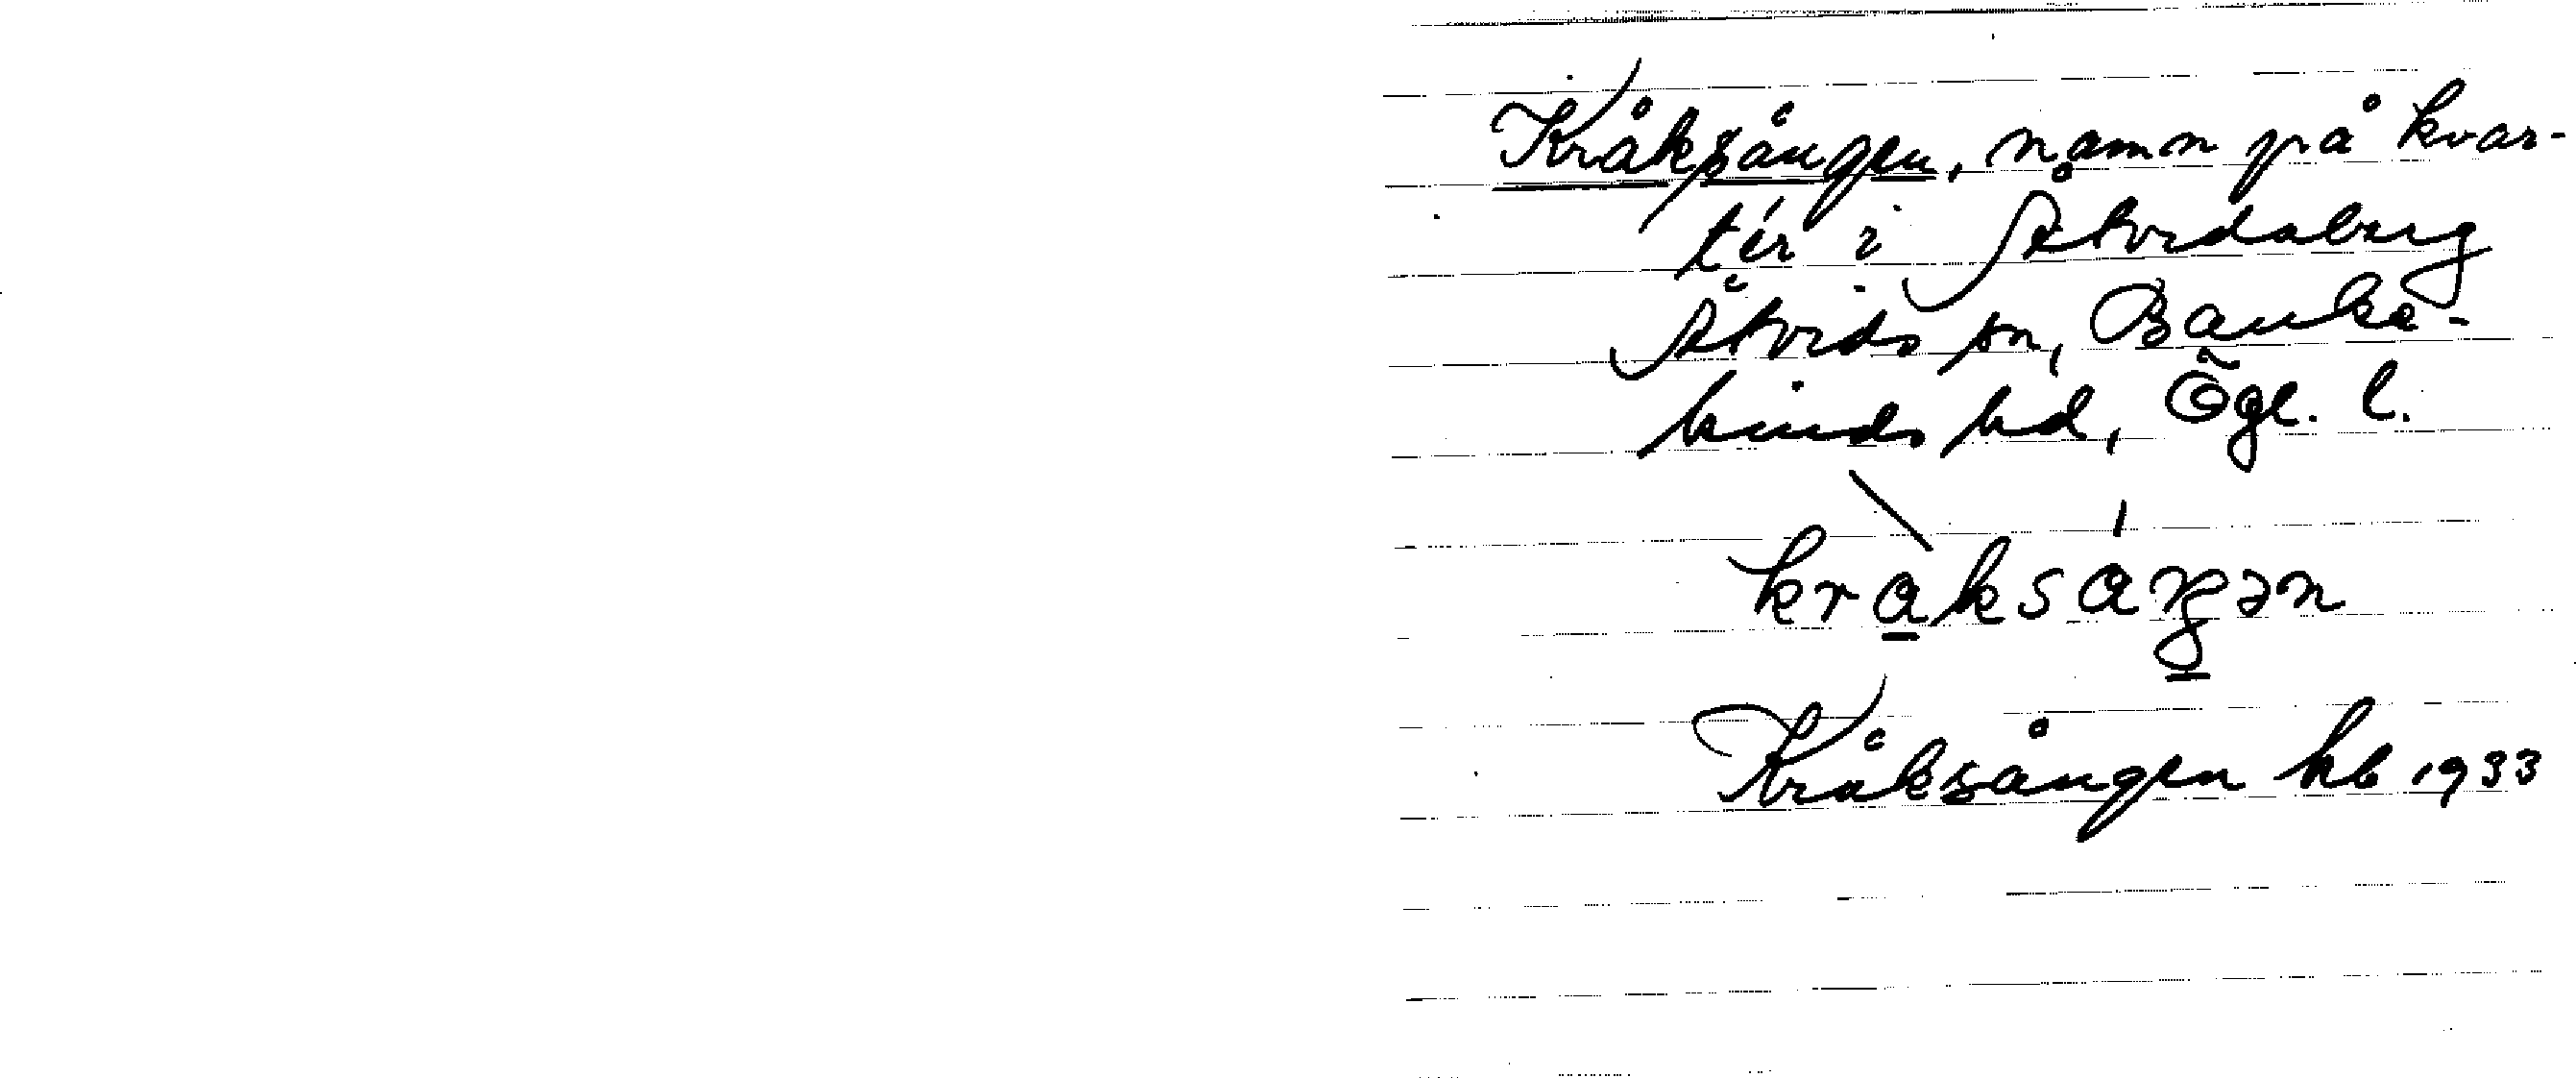 Kråksången, namn på kvar-
tér i Åtvidaberg
Åtvids sn, Banke-
kinds hd, Ögl. l.
kraksaŋən
Kråksången kb 1933